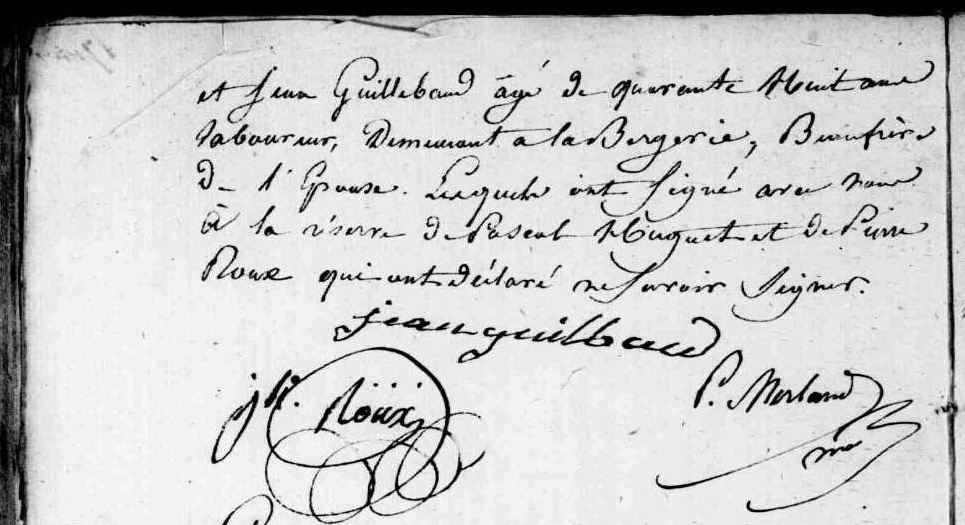 et Jean Guillebaud âgé de quarante Huit ans
laboureur, Demeurant a la Bergerie, Beaufrère
De l'Epouse. Lesquels ont Signé avec nous
à la réserve de Pascal Huguet et de Pierre
Roux qui ont déclaré ne Savoir Signer.
jean guilbaud
jh. Roux
P. Merland